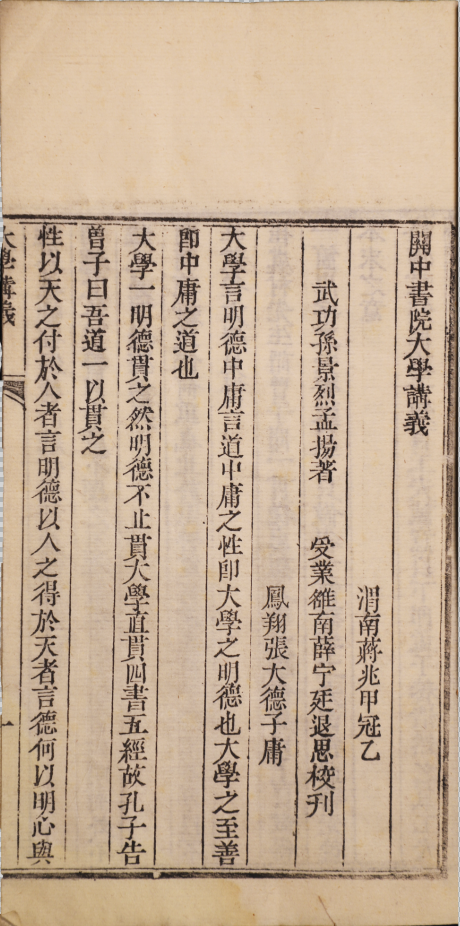 關中書院大學講義
渭南蔣兆甲冠乙
武功孫景烈孟揚著 受業雒南薛宁廷退思校刊
鳳翔張大德子庸
大學言明德中庸言道中庸之性卽大學之明德也大學之至善
卽中庸之道也
大學一明德貫之然明德不止貫大學直貫四書五經故孔子告
曽子曰吾道一以貫之
性以天之付於人者言明德以人之得於天者言德何以明心與
大學講義 一